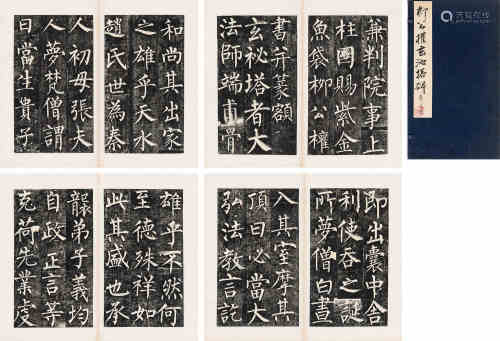 柳公權玄秘塔碑
兼判院事上
柱國賜紫金
魚袋柳公權
書并篆額
玄秘塔者大
法師端甫骨
和尚其出家
之雄乎天水
趙氏世為秦
人初母張夫
人夢梵僧謂
曰當生貴子
即出囊中舍
利使吞之誕
所夢僧白晝
入其室摩其
頂曰必當大
弘法教言訖
雄乎不然何
至德殊祥如
此其盛也承
襲弟子義均
自政正言等
克荷先業虔